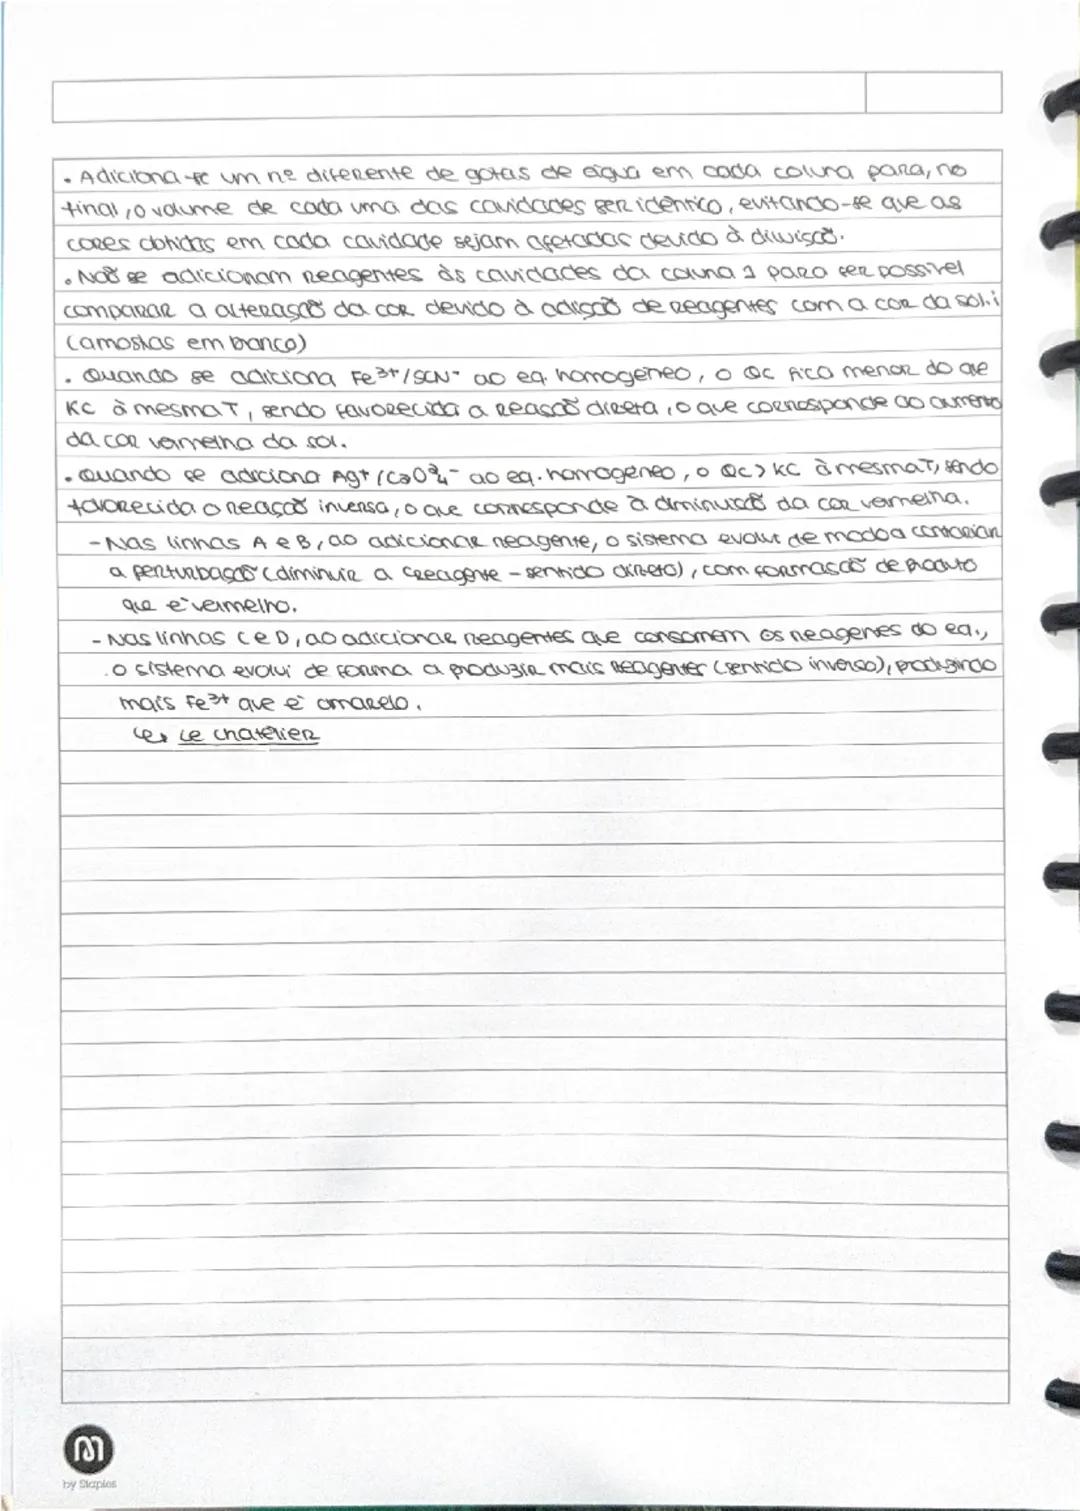 . Adiciona-se um nº diferente de gotas de água em cada coluna para, no
final, o volume de cada uma das cavidades ser idêntico, evitando-se que as
cores obtidas em cada cavidade sejam afetadas devido à diluição.
. Não se adicionam reagentes às cavidades da coluna 1 para ser possível
comparar a alteração da cor devido à adição de reagentes com a cor da sol. i
(amostras em branco)
. Quando se adiciona Fe³⁺/SCN⁻ ao eq. homogéneo, o Qc fica menor do que
Kc à mesma T, sendo favorecida a reação direta, o que corresponde ao aumento
da cor vermelha da sol.
. Quando se adiciona Ag⁺/C₂O₄²⁻ ao eq. homogéneo, o Qc > Kc à mesma T, sendo
favorecida a reação inversa, o que corresponde à diminuição da cor vermelha.
- Nas linhas A e B, ao adicionar reagente, o sistema evolui de modo a contrariar
a perturbação (diminuir a creagente - sentido direto), com formação de produto
que é vermelho.
- Nas linhas C e D, ao adicionar reagentes que consomem os reagenes do eq.,
o sistema evolui de forma a produzir mais reagentes (sentido inverso), produzindo
mais Fe³⁺ que é amarelo.
Le chatêlier
M
by Staples